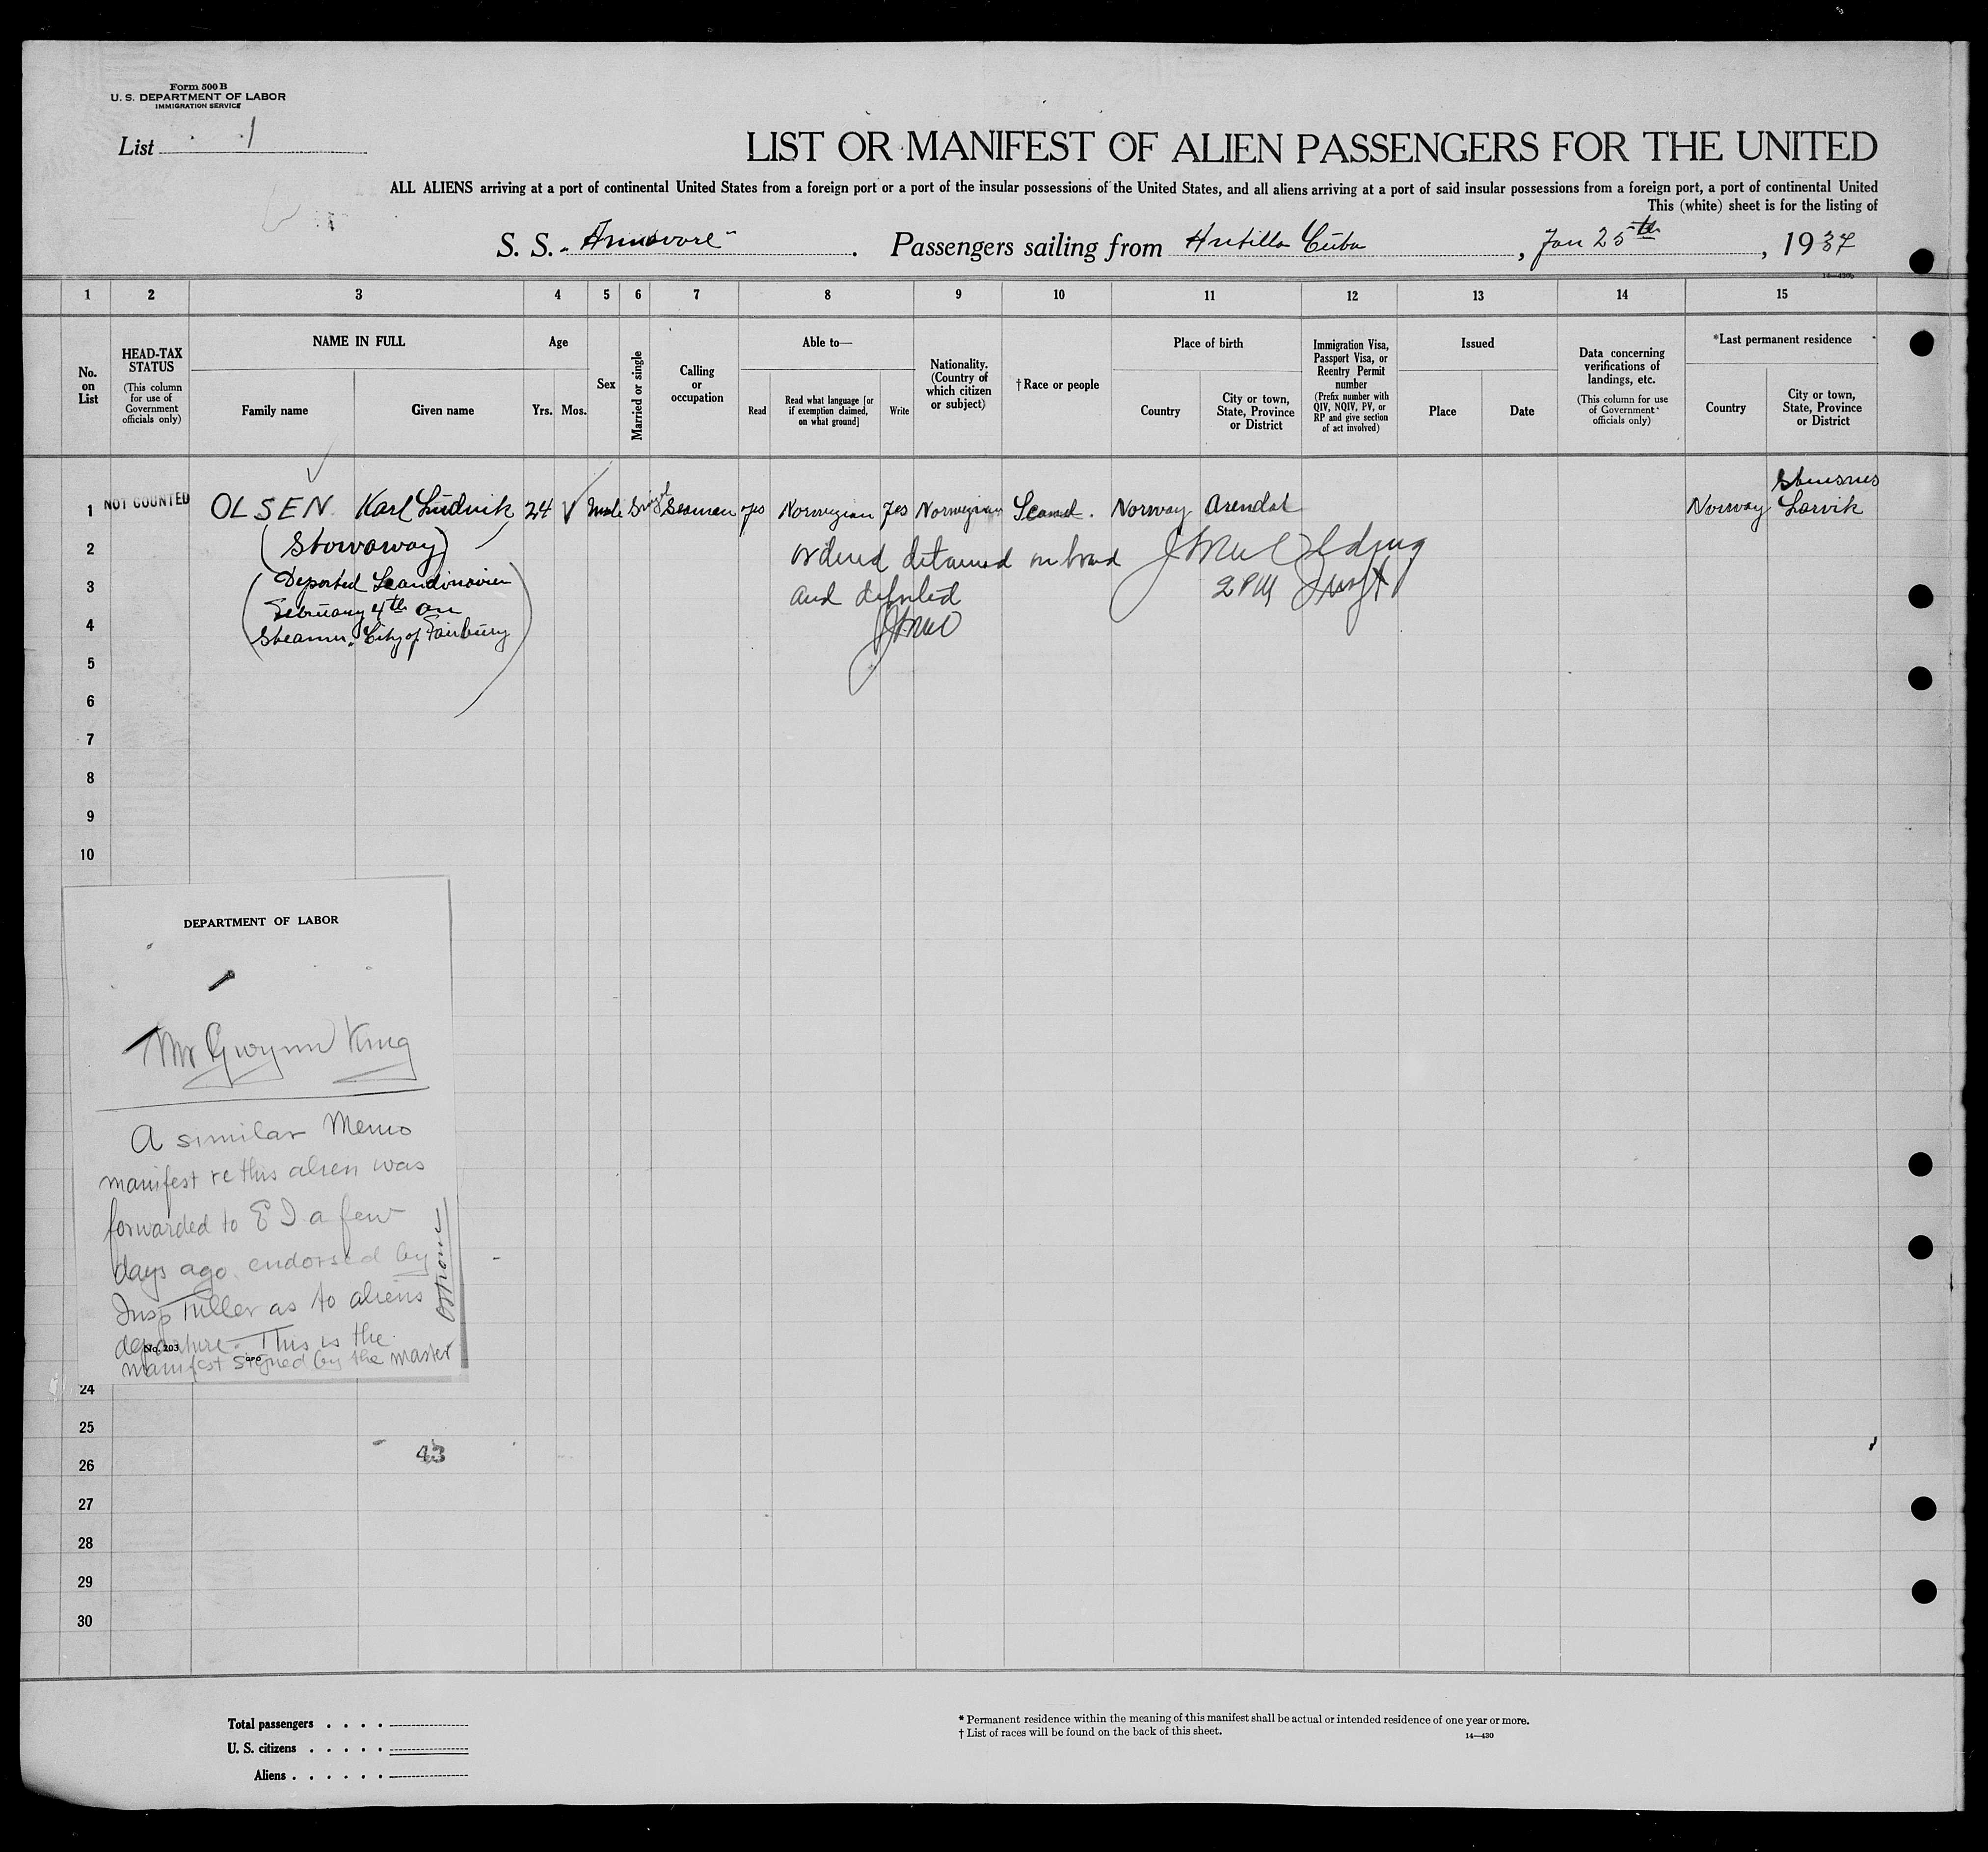 Form 500 B
U. S. DEPARTMENT OF LABOR
IMMIGRATION SERVICE
List 1
LIST OR MANIFEST OF ALIEN PASSENGERS FOR THE UNITED
ALL ALIENS arriving at a port of continental United States from a foreign port or a port of the insular possessions of the United States, and all aliens arriving at a port of said insular possessions from a foreign port, a port of continental United
This (white) sheet is for the listing of
S. S. Passengers sailing from Antilla Cuba, Jan 25th, 1937
1 2 3 4 5 6 7 8 9 10 11 12 13 14 15
No. on List
HEAD-TAX STATUS
(This column for use of Government officials only)
NAME IN FULL
Family name
Given name
Age
Yrs.
Mos.
Sex
Married or single
Calling or occupation
Able to—
Read
Read what language [or if exemption claimed, on what ground]
Write
Nationality. (Country of which citizen or subject)
†Race or people
Place of birth
Country
City or town, State, Province or District
Immigration Visa, Passport Visa, or Reentry Permit number
(Prefix number with QIV, NQIV, PV, or RP and give section of act involved)
Issued
Place
Date
Data concerning verifications of landings, etc.
(This column for use of Government officials only)
*Last permanent residence
Country
City or town, State, Province or District
1 NOT COUNTED OLSEN Karl Ludvik 24 Male Seaman yes Norwegian yes Norwegian Scand. Norway Arendal Norway Larvik
2 (Stowaway) ordered detained on board
3 (Deported Scandinavien and deported 2 PM
February 4th on
4 Steamer "City of Fairbury)
5
6
7
8
9
10
DEPARTMENT OF LABOR
Mr Gwynn King
A similar Memo
manifest re this alien was
forwarded to E I a few
days ago endorsed by
Insp Tuller as to aliens
departure. This is the
No. 203
manifest signed by the master
GPO
24
25
43
26
27
28
29
30
Total passengers . . . .
U. S. citizens . . . . .
Aliens . . . . . .
* Permanent residence within the meaning of this manifest shall be actual or intended residence of one year or more.
† List of races will be found on the back of this sheet.
14—430